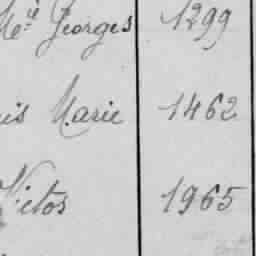 Mⁱᵉ Georges 1299
is Marie 1462
Victor 1965